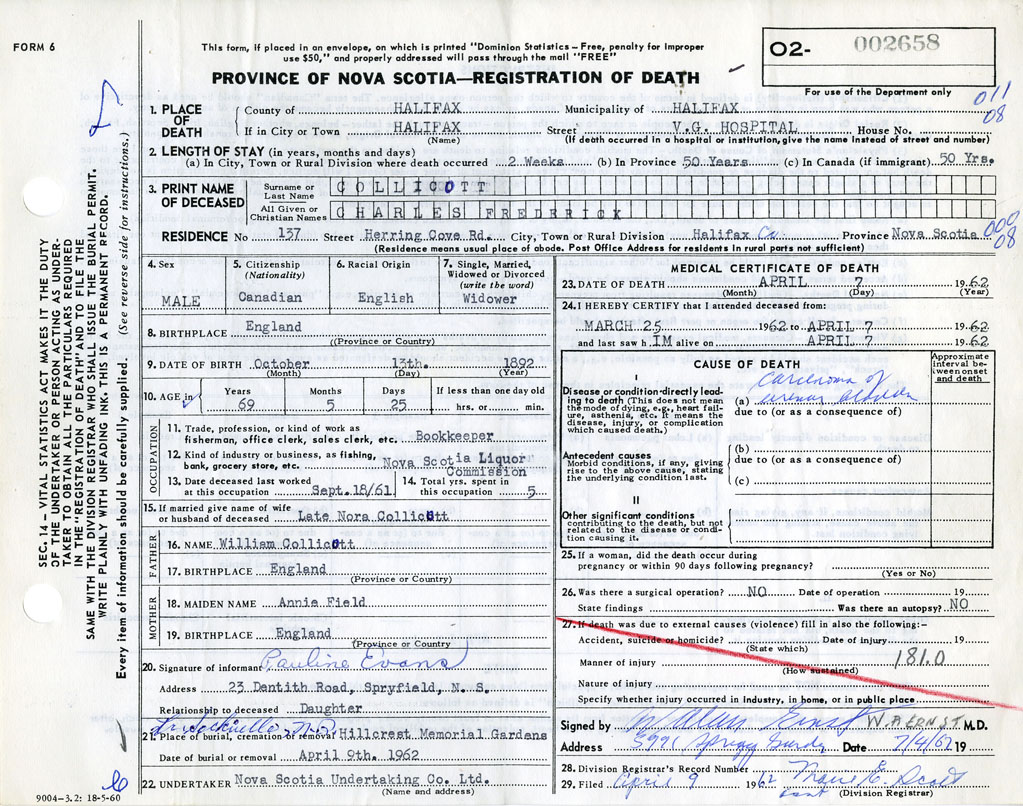 FORM 6
This form, if placed in an envelope, on which is printed "Dominion Statistics – Free, penalty for improper
use $50," and properly addressed will pass through the mail "FREE"
PROVINCE OF NOVA SCOTIA—REGISTRATION OF DEATH
O2- 002658
For use of the Department only
011
08
1. PLACE OF DEATH
County of HALIFAX Municipality of HALIFAX
If in City or Town HALIFAX Street V.G. HOSPITAL House No.
(Name) (If death occurred in a hospital or institution, give the name instead of street and number)
2. LENGTH OF STAY (in years, months and days)
(a) In City, Town or Rural Division where death occurred 2 Weeks (b) In Province 50 Years (c) In Canada (if immigrant) 50 Yrs.
3. PRINT NAME OF DECEASED
Surname or Last Name COLLICOTT
All Given or Christian Names CHARLES FREDERICK
RESIDENCE No 137 Street Herring Cove Rd. City, Town or Rural Division Halifax Co. Province Nova Scotia
000
08
(Residence means usual place of abode. Post Office Address for residents in rural parts not sufficient)
4. Sex MALE
5. Citizenship (Nationality) Canadian
6. Racial Origin English
7. Single, Married, Widowed or Divorced (write the word) Widower
8. BIRTHPLACE England
(Province or Country)
9. DATE OF BIRTH October 13th. 1892
(Month) (Day) (Year)
10. AGE in Years 69 Months 5 Days 25 If less than one day old hrs. or min.
OCCUPATION
11. Trade, profession, or kind of work as fisherman, office clerk, sales clerk, etc. Bookkeeper
12. Kind of industry or business, as fishing, bank, grocery store, etc. Nova Scotia Liquor Commission
13. Date deceased last worked at this occupation Sept.18/61
14. Total yrs. spent in this occupation 5
15. If married give name of wife or husband of deceased Late Nora Collicott
FATHER
16. NAME William Collicott
17. BIRTHPLACE England
(Province or Country)
MOTHER
18. MAIDEN NAME Annie Field
19. BIRTHPLACE England
(Province or Country)
20. Signature of informant Pauline Evans
Address 23 Dentith Road, Spryfield, N. S.
Relationship to deceased Daughter
21. Place of burial, cremation or removal Hillcrest Memorial Gardens
Date of burial or removal April 9th. 1962
22. UNDERTAKER Nova Scotia Undertaking Co. Ltd.
(Name and address)
9004-3.2: 18-5-60
MEDICAL CERTIFICATE OF DEATH
23. DATE OF DEATH APRIL 7 1962
(Month) (Day) (Year)
24. I HEREBY CERTIFY that I attended deceased from:
MARCH 25 1962 to APRIL 7 1962
and last saw h IM alive on APRIL 7 1962
CAUSE OF DEATH
Approximate interval between onset and death
I
Disease or condition directly leading to death (This does not mean the mode of dying, e.g., heart failure, asthenia, etc. It means the disease, injury, or complication which caused death.)
(a) carcinoma of urinary bladder
due to (or as a consequence of)
Antecedent causes
Morbid conditions, if any, giving rise to the above cause, stating the underlying condition last.
(b)
due to (or as a consequence of)
(c)
II
Other significant conditions
contributing to the death, but not related to the disease or condition causing it.
25. If a woman, did the death occur during
pregnancy or within 90 days following pregnancy?
(Yes or No)
26. Was there a surgical operation? NO Date of operation 19
State findings Was there an autopsy? NO
27. If death was due to external causes (violence) fill in also the following:-
Accident, suicide or homicide? Date of injury 19
(State which)
Manner of injury 181.0
(How sustained)
Nature of injury
Specify whether injury occurred in industry, in home, or in public place
Signed by W Allan Ernst W. A. ERNST M.D.
Address 5991 Spring Garden Date 7/4/62 19
28. Division Registrar's Record Number
29. Filed April 9 1962 Marie E. Scott
(Division Registrar)
SEC. 14 – VITAL STATISTICS ACT MAKES IT THE DUTY
OF THE UNDERTAKER OR PERSON ACTING AS UNDERTAKER
TO OBTAIN ALL THE PARTICULARS REQUIRED
IN THE "REGISTRATION OF DEATH" AND TO FILE THE
SAME WITH THE DIVISION REGISTRAR WHO SHALL ISSUE THE BURIAL PERMIT.
WRITE PLAINLY WITH UNFADING INK. THIS IS A PERMANENT RECORD.
Every item of information should be carefully supplied. (See reverse side for instructions.)